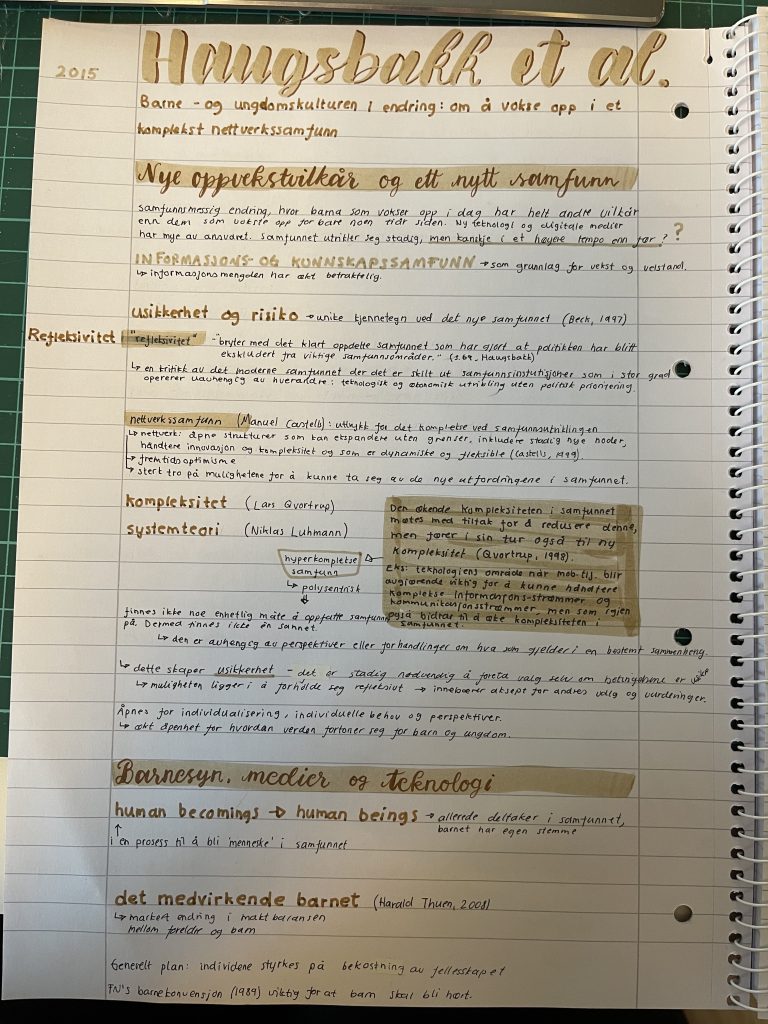 2015
Haugsbakk et al.
Barne - og ungdomskulturen i endring: om å vokse opp i et
komplekst nettverkssamfunn
Nye oppvekstvilkår og ett nytt samfunn
samfunnsmessig endring, hvor barna som vokser opp i dag har helt andre vilkår
enn dem som vokste opp for bare noen tiår siden. Ny teknologi og digitale medier
har mye av ansvaret. Samfunnet utvikler seg stadig, men kanskje i et høyere tempo enn før? ?
INFORMASJONS- OG KUNNSKAPSSAMFUNN → som grunnlag for vekst og velstand.
↳ informasjonsmengden har økt betraktelig.
usikkerhet og risiko → unike kjennetegn ved det nye samfunnet (Beck, 1997)
Refleksivitet "refleksivitet" - "bryter med det klart oppdelte samfunnet som har gjort at politikken har blitt
ekskludert fra viktige samfunnsområder." (s.69, Haugsbakk)
↳ en kritikk av det moderne samfunnet der det er skilt ut samfunnsinstitusjoner som i stor grad
opererer uavhengig av hverandre: teknologisk og økonomisk utvikling uten politisk prioritering.
nettverkssamfunn (Manuel Castells): uttrykk for det komplekse ved samfunnsutviklingen
↳ nettverk: åpne strukturer som kan ekspandere uten grenser, inkludere stadig nye noder,
håndtere innovasjon og kompleksitet og som er dynamiske og fleksible (Castells, 1999)
↳ fremtidsoptimisme
↳ sterk tro på mulighetene for å kunne ta seg av de nye utfordringene i samfunnet.
kompleksitet (Lars Qvortrup)
systemteori (Niklas Luhmann)
Den økende kompleksiteten i samfunnet
møtes med tiltak for å redusere denne,
men fører i sin tur også til ny
kompleksitet (Qvortrup, 1998).
Eks: teknologiens område når mob.tlf. blir
avgjørende viktig for å kunne håndtere
komplekse informasjons-strømmer og
kommunikasjonsstrømmer, men som igjen
også bidrar til å øke kompleksiteten i
samfunnet.
hyperkomplekse
samfunn
↳ polysentrisk
finnes ikke noe enhetlig måte å oppfatte samfunnet
på. Dermed finnes ikke én sannhet.
↳ den er avhengig av perspektiver eller forhandlinger om hva som gjelder i en bestemt sammenheng.
↳ dette skaper usikkerhet - det er stadig nødvendig å foreta valg selv om betingelsene er usikre
↳ muligheten ligger i å forholde seg refleksivt → innebærer aksept for andres valg og vurderinger.
Åpnes for individualisering, individuelle behov og perspektiver.
↳ økt åpenhet for hvordan verden fortoner seg for barn og ungdom.
Barnesyn, medier og teknologi
human becomings → human beings → allerede deltaker i samfunnet,
barnet har egen stemme
↑
i en prosess til å bli 'menneske' i samfunnet
det medvirkende barnet (Harald Thuen, 2008)
↳ markert endring i maktbalansen
mellom foreldre og barn
Generelt plan: individene styrkes på bekostning av fellesskapet
FN's barnekonvensjon (1989) viktig for at barn skal bli hørt.